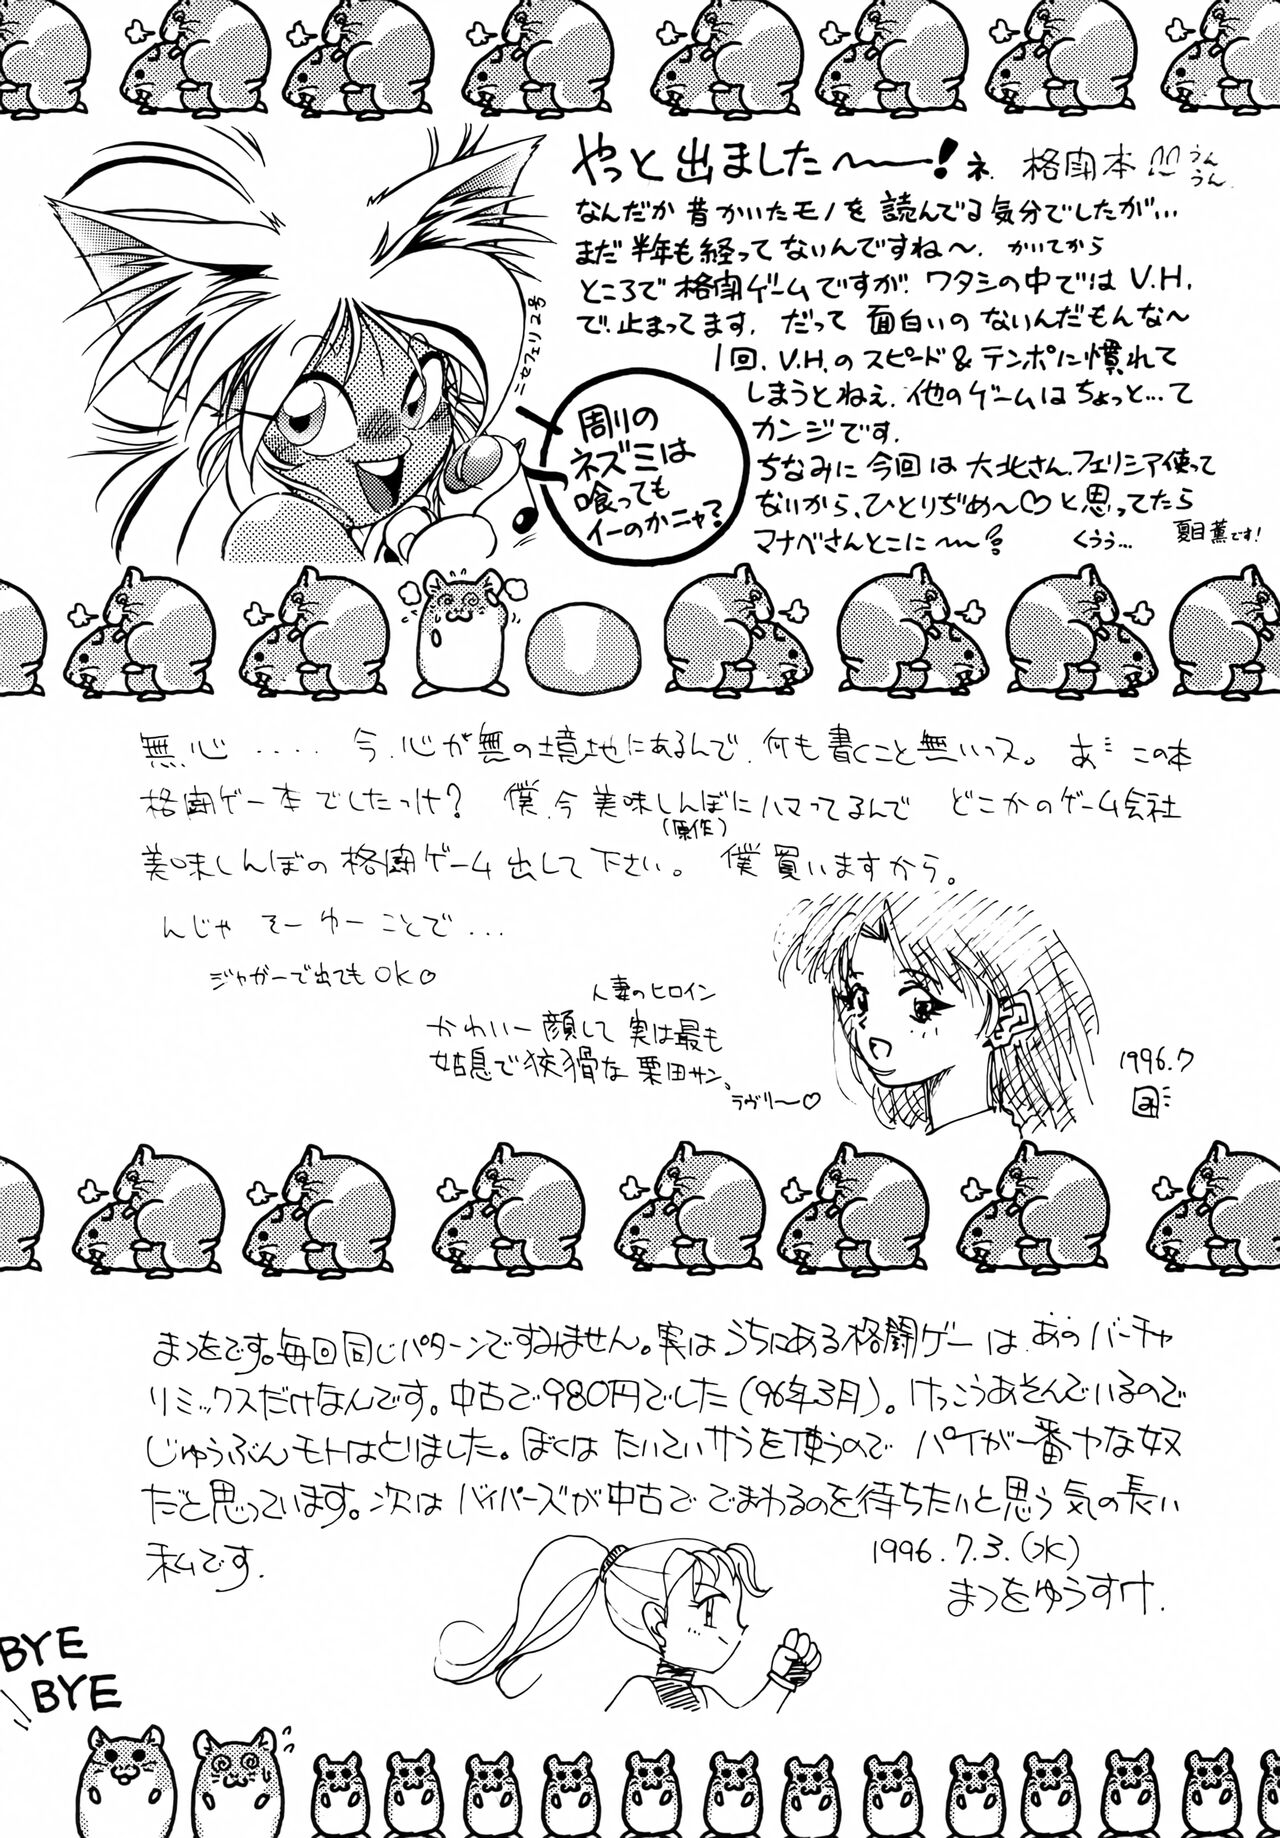 やっと出ました〜〜!ネ 格闘本!! うん
うん.
なんだか昔かいたモノを読んでる気分でしたが...
まだ半年も経ってないんですね〜. かいてから
ところで格闘ゲームですが、ワタシの中ではV.H.
で止まってます. だって面白いのないんだもんな〜
1回、V.H.のスピード&テンポに慣れて
しまうとねぇ. 他のゲームはちょっと...て
カンジです.
ちなみに今回は大北さん、フェリシア使って
ないから、ひとりぢめ〜♡と思ってたら
マナベさんとこに〜〜? くうう... 夏目薫です!
ニセフェリ2号
周りの
ネズミは
喰っても
イーのかニャ?
無心.... 今、心が無の境地にあるんで、何も書くこと無いっス。 あ… この本
格闘ゲー本でしたっけ? 僕、今美味しんぼ(原作)にハマってるんで どこかのゲーム会社
美味しんぼの格闘ゲーム出して下さい。 僕買いますから。
んじゃ そーゆーことで...
ジャガーで出てもOK♡
人妻のヒロイン
かわいー顔して実は最も
姑息で狡猾な栗田サン、
ラヴリ〜♡
1996.7
まつをです。毎回同じパターンですみません。実はうちにある格闘ゲーは、あのバーチャ
リミックスだけなんです。中古で980円でした(96年3月)。けっこうあそんでいるので
じゅうぶんモトはとりました。ぼくはたいていサラを使うので パイが一番ヤな奴
だと思っています。次はバイパーズが中古ででまわるのを待ちたいと思う気の長い
私です.
1996.7.3.(水)
まつをゆうすけ.
BYE
BYE